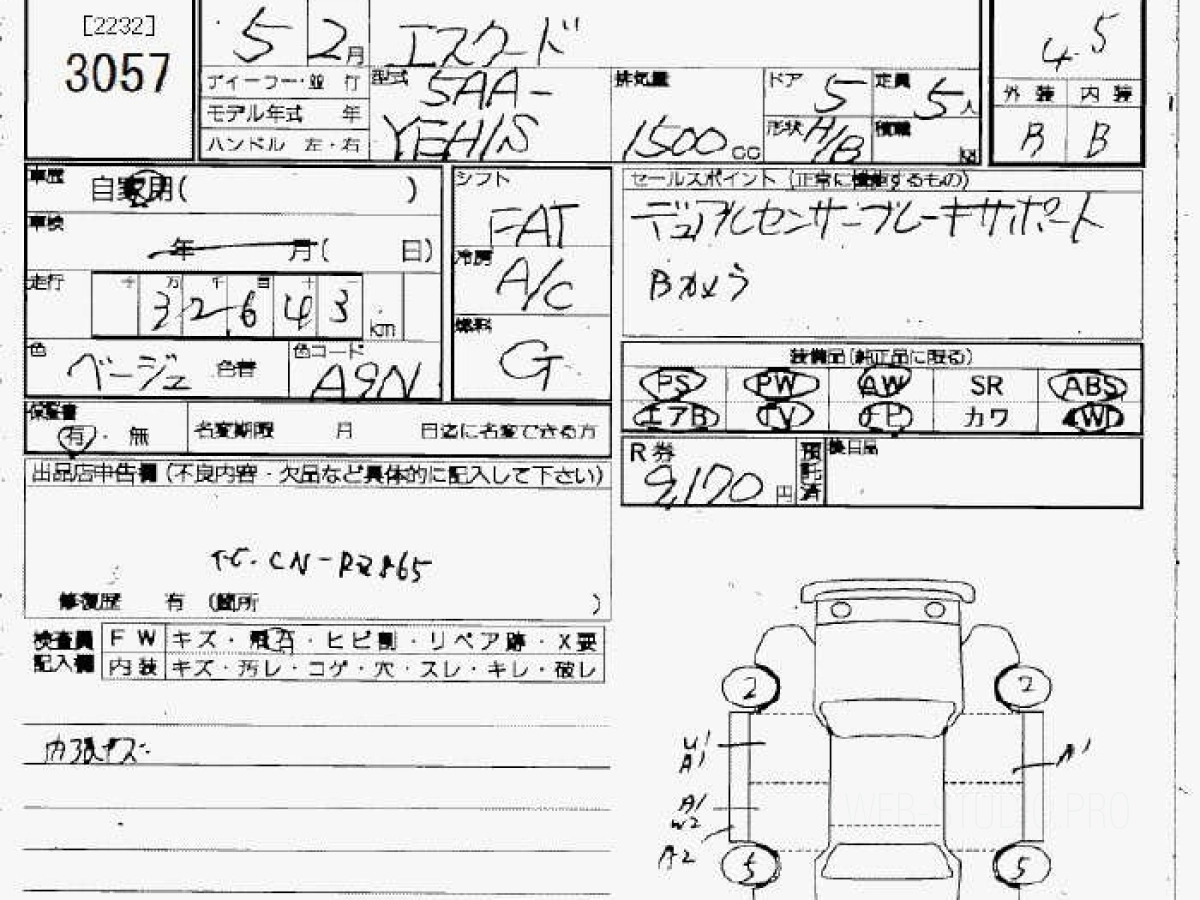 [2232]
3057
5 2月 エスクード
4.5
ディーラー・並 行 型式 5AA- 排気量 ドア 5 定員 5人
外 装 内 装
モデル年式 年
ハンドル 左・右 YEH1S 1500cc 形状 H/B 積載 kg
B B
車歴 自家用( ) シフト FAT
セールスポイント (正常に機能するもの)
デュアルセンサーブレーキサポート
Bカメラ
車検 年 月( 日) 冷房 A/C
走行 千 万 千 百 十 一
32643 km
燃料 G
色 ベージュ 色替 色コード A9N
装備品(純正品に限る)
PS PW AW SR ABS
エアB TV FP カワ 4WD
保証書 有・無 名変期限 月 日迄に名変できる方
R券 9,170円 預託済 後日品
出品店申告欄(不良内容・欠品など具体的に記入して下さい)
修復歴 有 (箇所 )
検査員記入欄
FW キズ・飛石・ヒビ割・リペア跡・X要
内装 キズ・汚レ・コゲ・穴・スレ・キレ・破レ
内張キズ
2 2
U1
A1
A1
A1
W2
A2
5 5
WEB-STUDIO.PRO